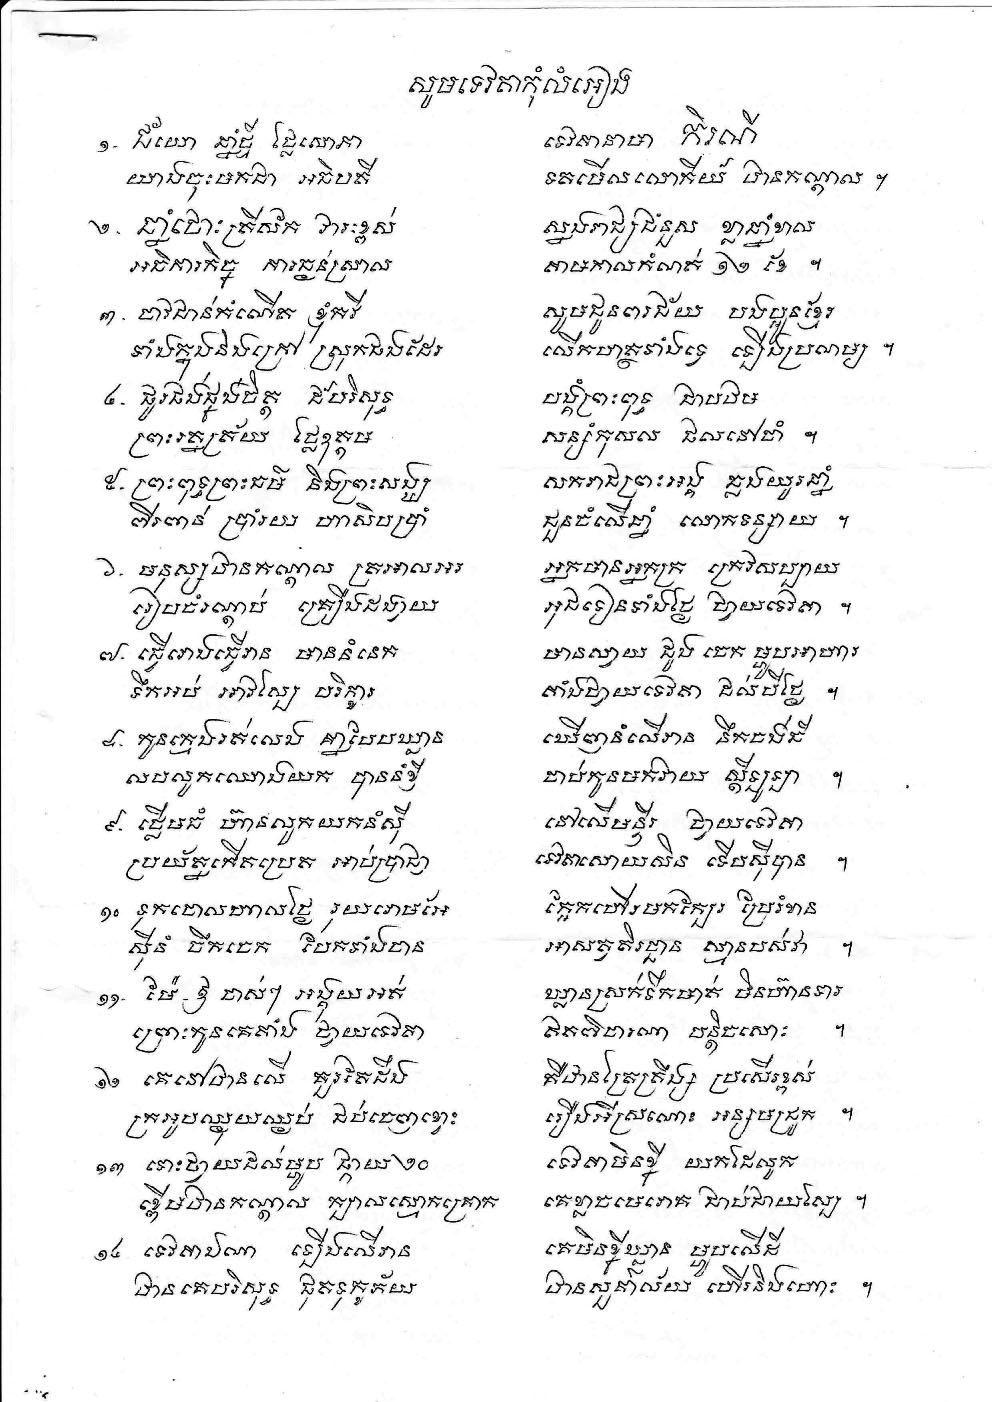 សូមទេវតាកុំលំអៀង
១- ជ័យោ ឆ្នាំថ្មី ថ្លៃសោភា ទេវតានាមា កិរិណី
យាងចុះមកជា អធិបតី ទតមើលលោកីយ៍ ឋានកណ្តាល ។
២. ឆ្នាំជោះត្រីស័ក វារៈខ្ពស់ ស្នងរាជ្យជំនួស ខ្លាឆ្នាំខាល
អធិការកិច្ច ការធ្ងន់ស្រាល តាមកាលកំណត់ ១២ ខែ ។
៣. ជាវជាន់កំណើត ខ្ញុំកវី សូមជូនពរជ័យ បងប្អូនខ្មែរ
ទាំងក្នុងនិងក្រៅ ស្រុកផងដែរ លើកហត្ថទាំងទ្វេ ឡើងប្រណម្យ ។
៤. ផូរផង់ផ្ចង់ចិត្ត ដ៏បរិសុទ្ធ បង្គំព្រះពុទ្ធ ជាប់ជិម
ព្រះរត្នត្រ័យ ថ្លៃឧត្តម សន្សំកុសល ផលនៅចាំ ។
៥. ព្រះពុទ្ធព្រះធម៌ និងព្រះសង្ឃ សករាជព្រះអង្គ ឆ្លងយូរឆ្នាំ
ពីរពាន់ ប្រាំរយ ហាសិបប្រាំ ជួនជំលើឆ្នាំ លោកទន្សាយ ។
៦. មនុស្សឋានកណ្តាល ត្រអាលអរ អ្នកមានអ្នកក្រ ក្រវែសប្បាយ
រៀបចំរណ្តាប់ គ្រឿងដង្វាយ អុជទៀនទាំងថ្ងៃ ថ្វាយទេវតា ។
៧. ធ្វើរោងធ្វើរាន មាននំនេក មានស្វាយ ដូង ចេក ម្ហូបអាហារ
ទឹកអប់ អាវស្បៃ បរិក្ខារ តាំងថ្វាយទេវតា ដល់បីថ្ងៃ ។
៨. កូនក្មេងរត់លេង គ្នាបែបឃ្លាន ឃើញនំលើរាន នឹកចង់ស៊ី
លបលូកឈោងយក បាននំអ្វី ចាប់កូនមកវាយ ស្តីឡូឡា ។
៩. ដើមធំ ហ៊ានលួកយកនំស៊ី នៅលើមន្ទីរ ថ្វាយទេវតា
ប្រយ័ត្នកើតប្រេត អាប់ប្រាជ្ញា ទេវតាសោយសិន ទើបស៊ីបាន ។
១០ ទុកចោលហាលថ្ងៃ រុយរោមអែ ក្អែកហើរមកក្បែរ ប្រែរំខាន
ស៊ីនំ ចឹកចេក បែកទាំងចាន អាសត្វតិរច្ឆាន ស្មានរបស់វា ។
១១- ម៉ែ-ឪ ចាស់ៗ អង្គុយអត់ ឃ្លានស្រក់ទឹកមាត់ មិនហ៊ានទារ
ព្រោះកូនគេតាំង ថ្វាយទេវតា ឥតពិចារណា បន្តិចសោះ ។
១២ គេនៅឋានលើ គួរវែតដឹង គឺឋានត្រៃត្រឹង្ស ប្រសើរខ្ពស់
ក្រអូបឈ្ងុយឈ្ងប់ ជប់ចេញខ្ទះ រឿងអីស្រណោះ អន្សមជ្រូក ។
១៣ ទោះថ្វាយដល់ម្ហូប ផ្កាយ២០ ទេវតាមិនខ្ចី យកដៃលូក
ខ្ពើមឋានកណ្តាល ក្បាលស្មោកគ្រោក គេខ្លាចមេរោគ ជាប់ជាយស្បៃ ។
១៤ ទេវតាឯណា ឡើងលើរាន គេមិនខ្ចីឃ្លាន ម្ហូបលើដី
ឋានគេបរិសុទ្ធ ផុតទុក្ខភ័យ ឋានសួគ៌ាល័យ ហើរនិងហោះ ។